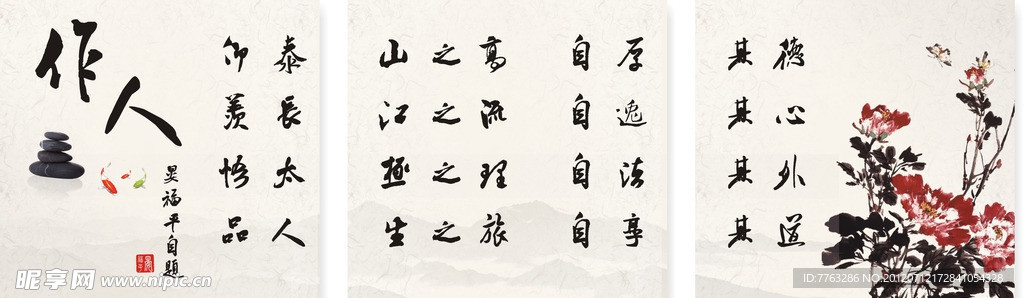 作人
福平自題
仰泰山之高自厚其德
羨長江之流自逸其心
悟太極之理自法其外
品人生之旅自享其道
昵享网 www.nipic.cn
ID:7763286 NO:20120712172841054328